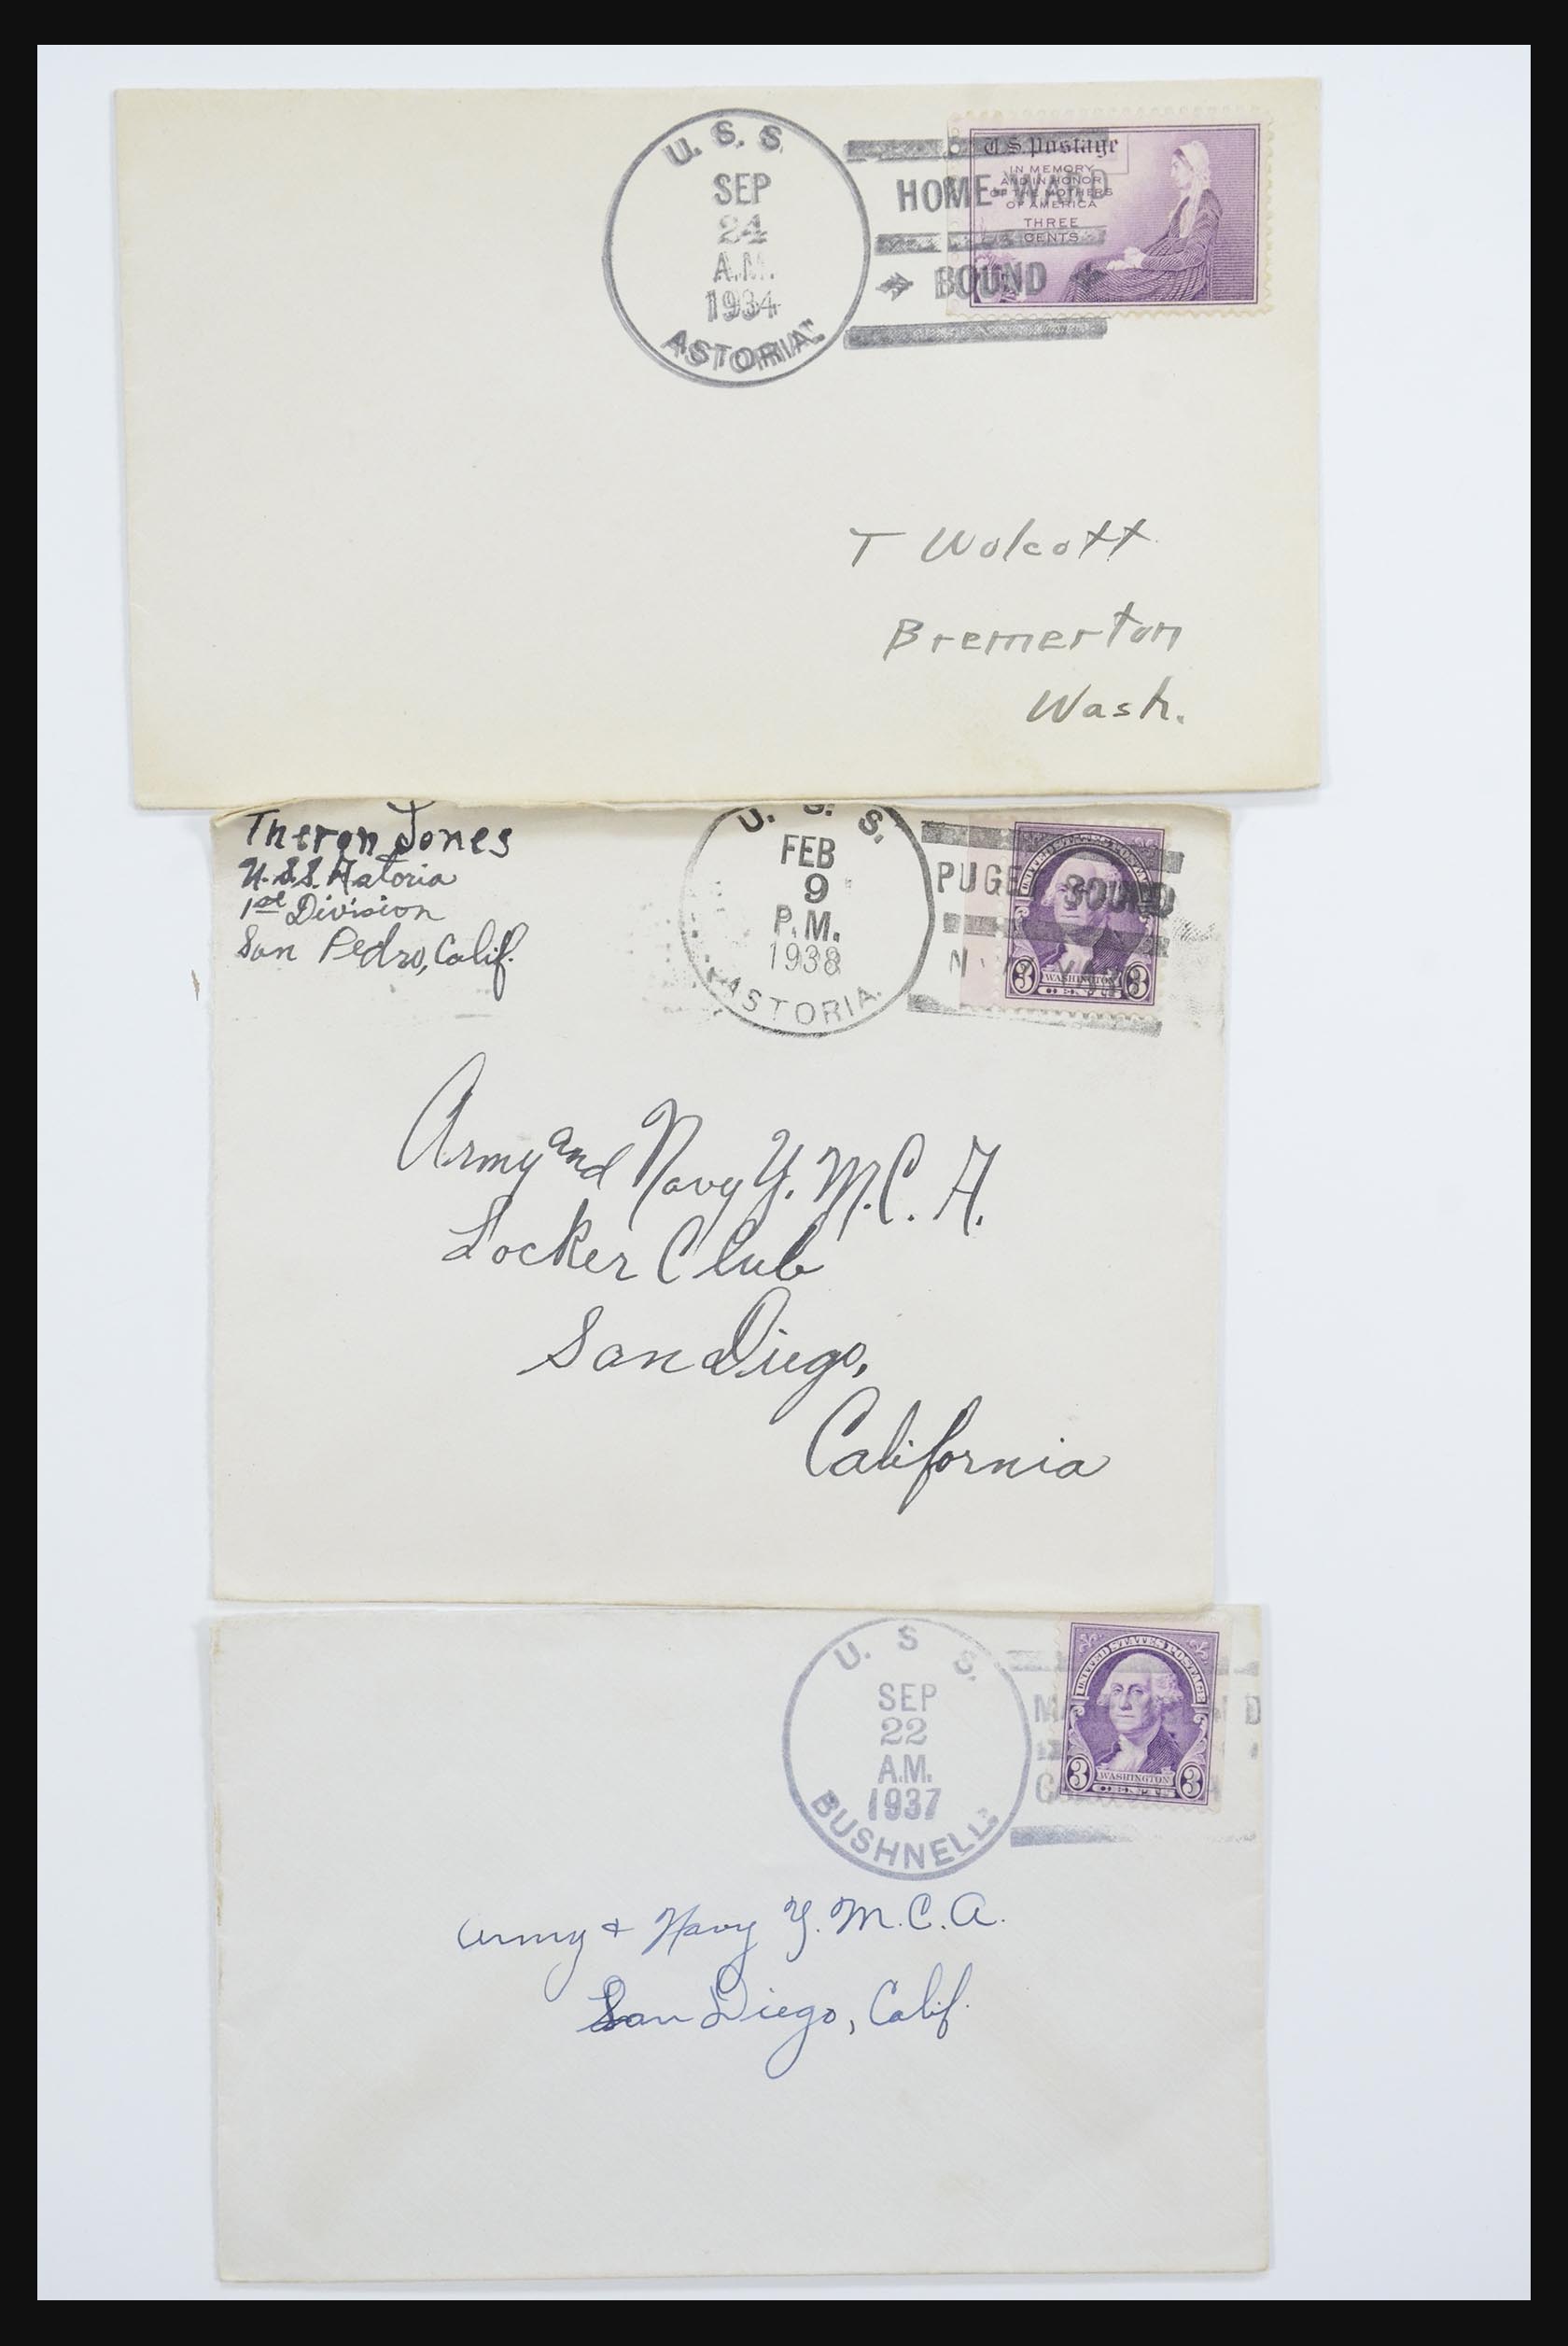 U. S. S.
SEP
24
A.M.
1934
ASTORIA
HOME-WARD
BOUND
U.S. Postage
IN MEMORY
AND IN HONOR
OF THE MOTHERS
OF AMERICA
THREE
CENTS
T Wolcott
Bremerton
Wash.
Theron Jones
U.S.S. Astoria
1st Division
San Pedro, Calif.
U. S. S.
FEB
9
P.M.
1938
ASTORIA
PUGE SOUND
UNITED STATES POSTAGE
3 WASHINGTON 3
Army and Navy Y.M.C.A.
Locker Club
San Diego,
California
U. S. S.
SEP
22
A.M.
1937
BUSHNELL
UNITED STATES POSTAGE
3 WASHINGTON 3
CENTS
Army & Navy Y.M.C.A.
San Diego, Calif.